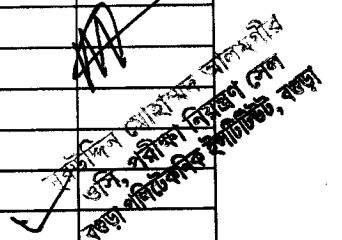 মোহাম্মদ আলমগীর
ওসি, পরীক্ষা নিয়ন্ত্রণ সেল
বগুড়া পলিটেকনিক ইন্সটিটিউট, বগুড়া